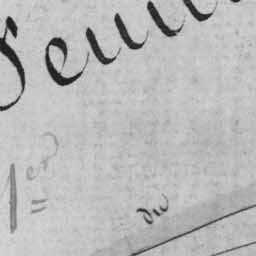 Feuil
1er
du